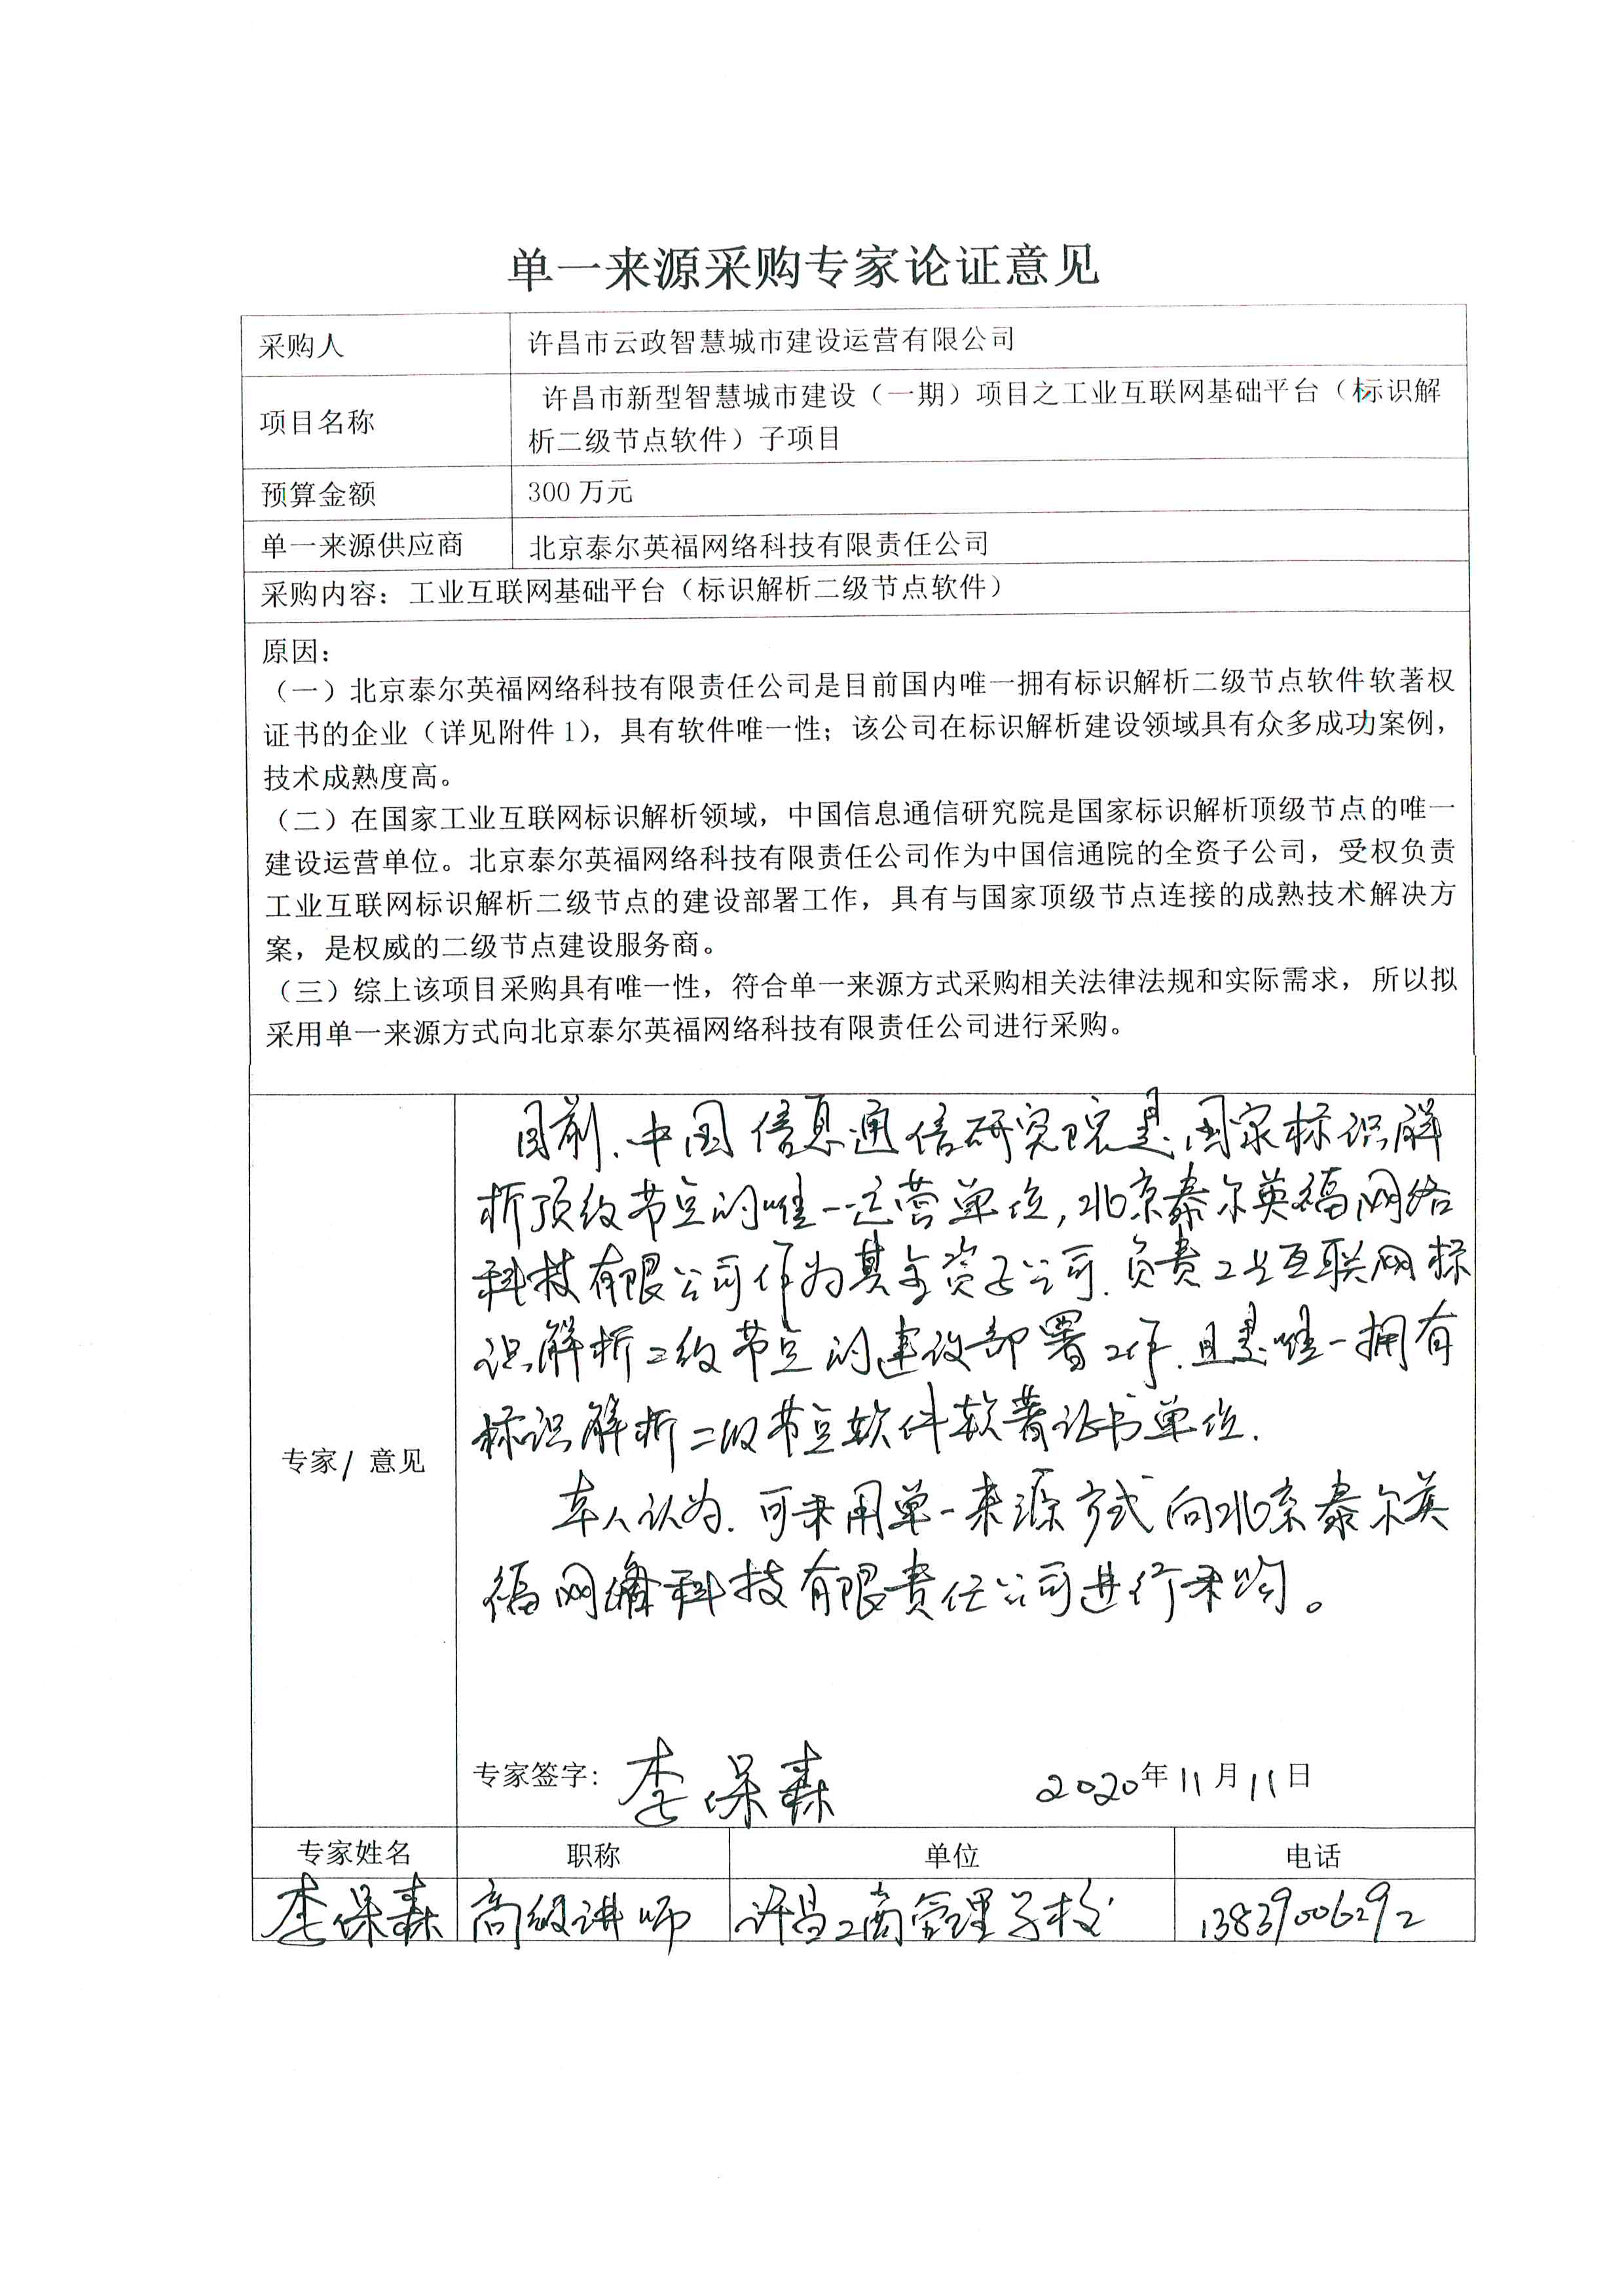 单一来源采购专家论证意见
采购人
许昌市云政智慧城市建设运营有限公司
项目名称
许昌市新型智慧城市建设（一期）项目之工业互联网基础平台（标识解
析二级节点软件）子项目
预算金额
300 万元
单一来源供应商
北京泰尔英福网络科技有限责任公司
采购内容：工业互联网基础平台（标识解析二级节点软件）
原因：
（一）北京泰尔英福网络科技有限责任公司是目前国内唯一拥有标识解析二级节点软件软著权
证书的企业（详见附件 1），具有软件唯一性；该公司在标识解析建设领域具有众多成功案例，
技术成熟度高。
（二）在国家工业互联网标识解析领域，中国信息通信研究院是国家标识解析顶级节点的唯一
建设运营单位。北京泰尔英福网络科技有限责任公司作为中国信通院的全资子公司，受权负责
工业互联网标识解析二级节点的建设部署工作，具有与国家顶级节点连接的成熟技术解决方
案，是权威的二级节点建设服务商。
（三）综上该项目采购具有唯一性，符合单一来源方式采购相关法律法规和实际需求，所以拟
采用单一来源方式向北京泰尔英福网络科技有限责任公司进行采购。
目前、中国信息通信研究院是国家标识解
析顶级节点的唯一运营单位,北京泰尔英福网络
科技有限公司作为其全资子公司.负责工业互联网标
识解析二级节点的建设部署工作.且是唯一拥有
标识解析二级节点软件软著证书单位.
专家/ 意见
本人认为.可采用单一来源方式向北京泰尔英
福网络科技有限责任公司进行采购。
专家签字：李保森 2020年11月11日
专家姓名 职称 单位 电话
李保森 高级讲师 许昌工商管理学校 13839006292